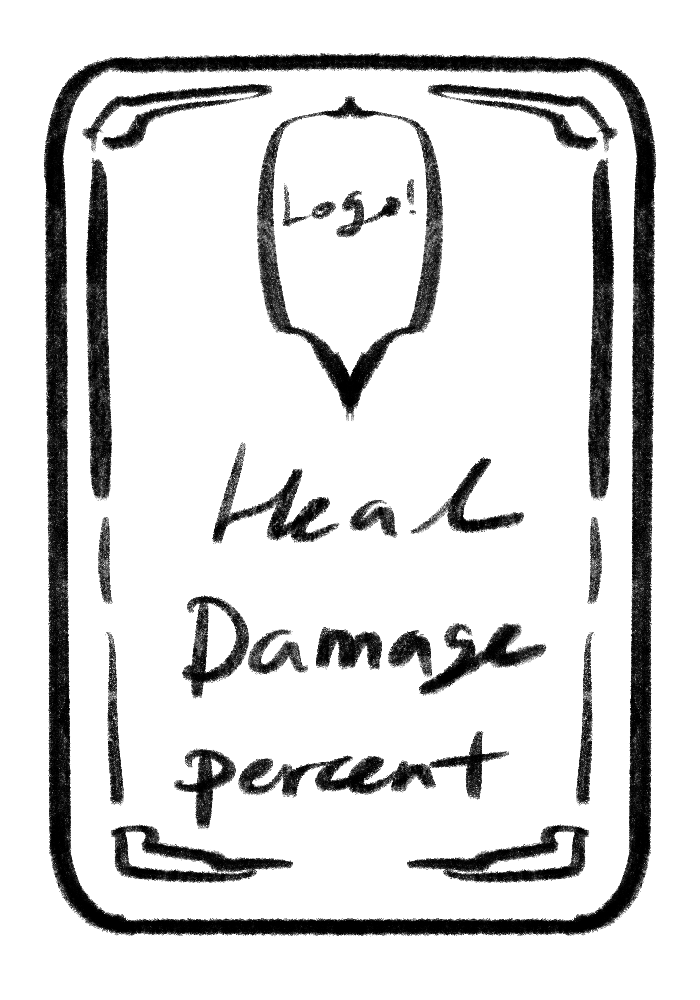 Logo!
Heal
Damage
percent